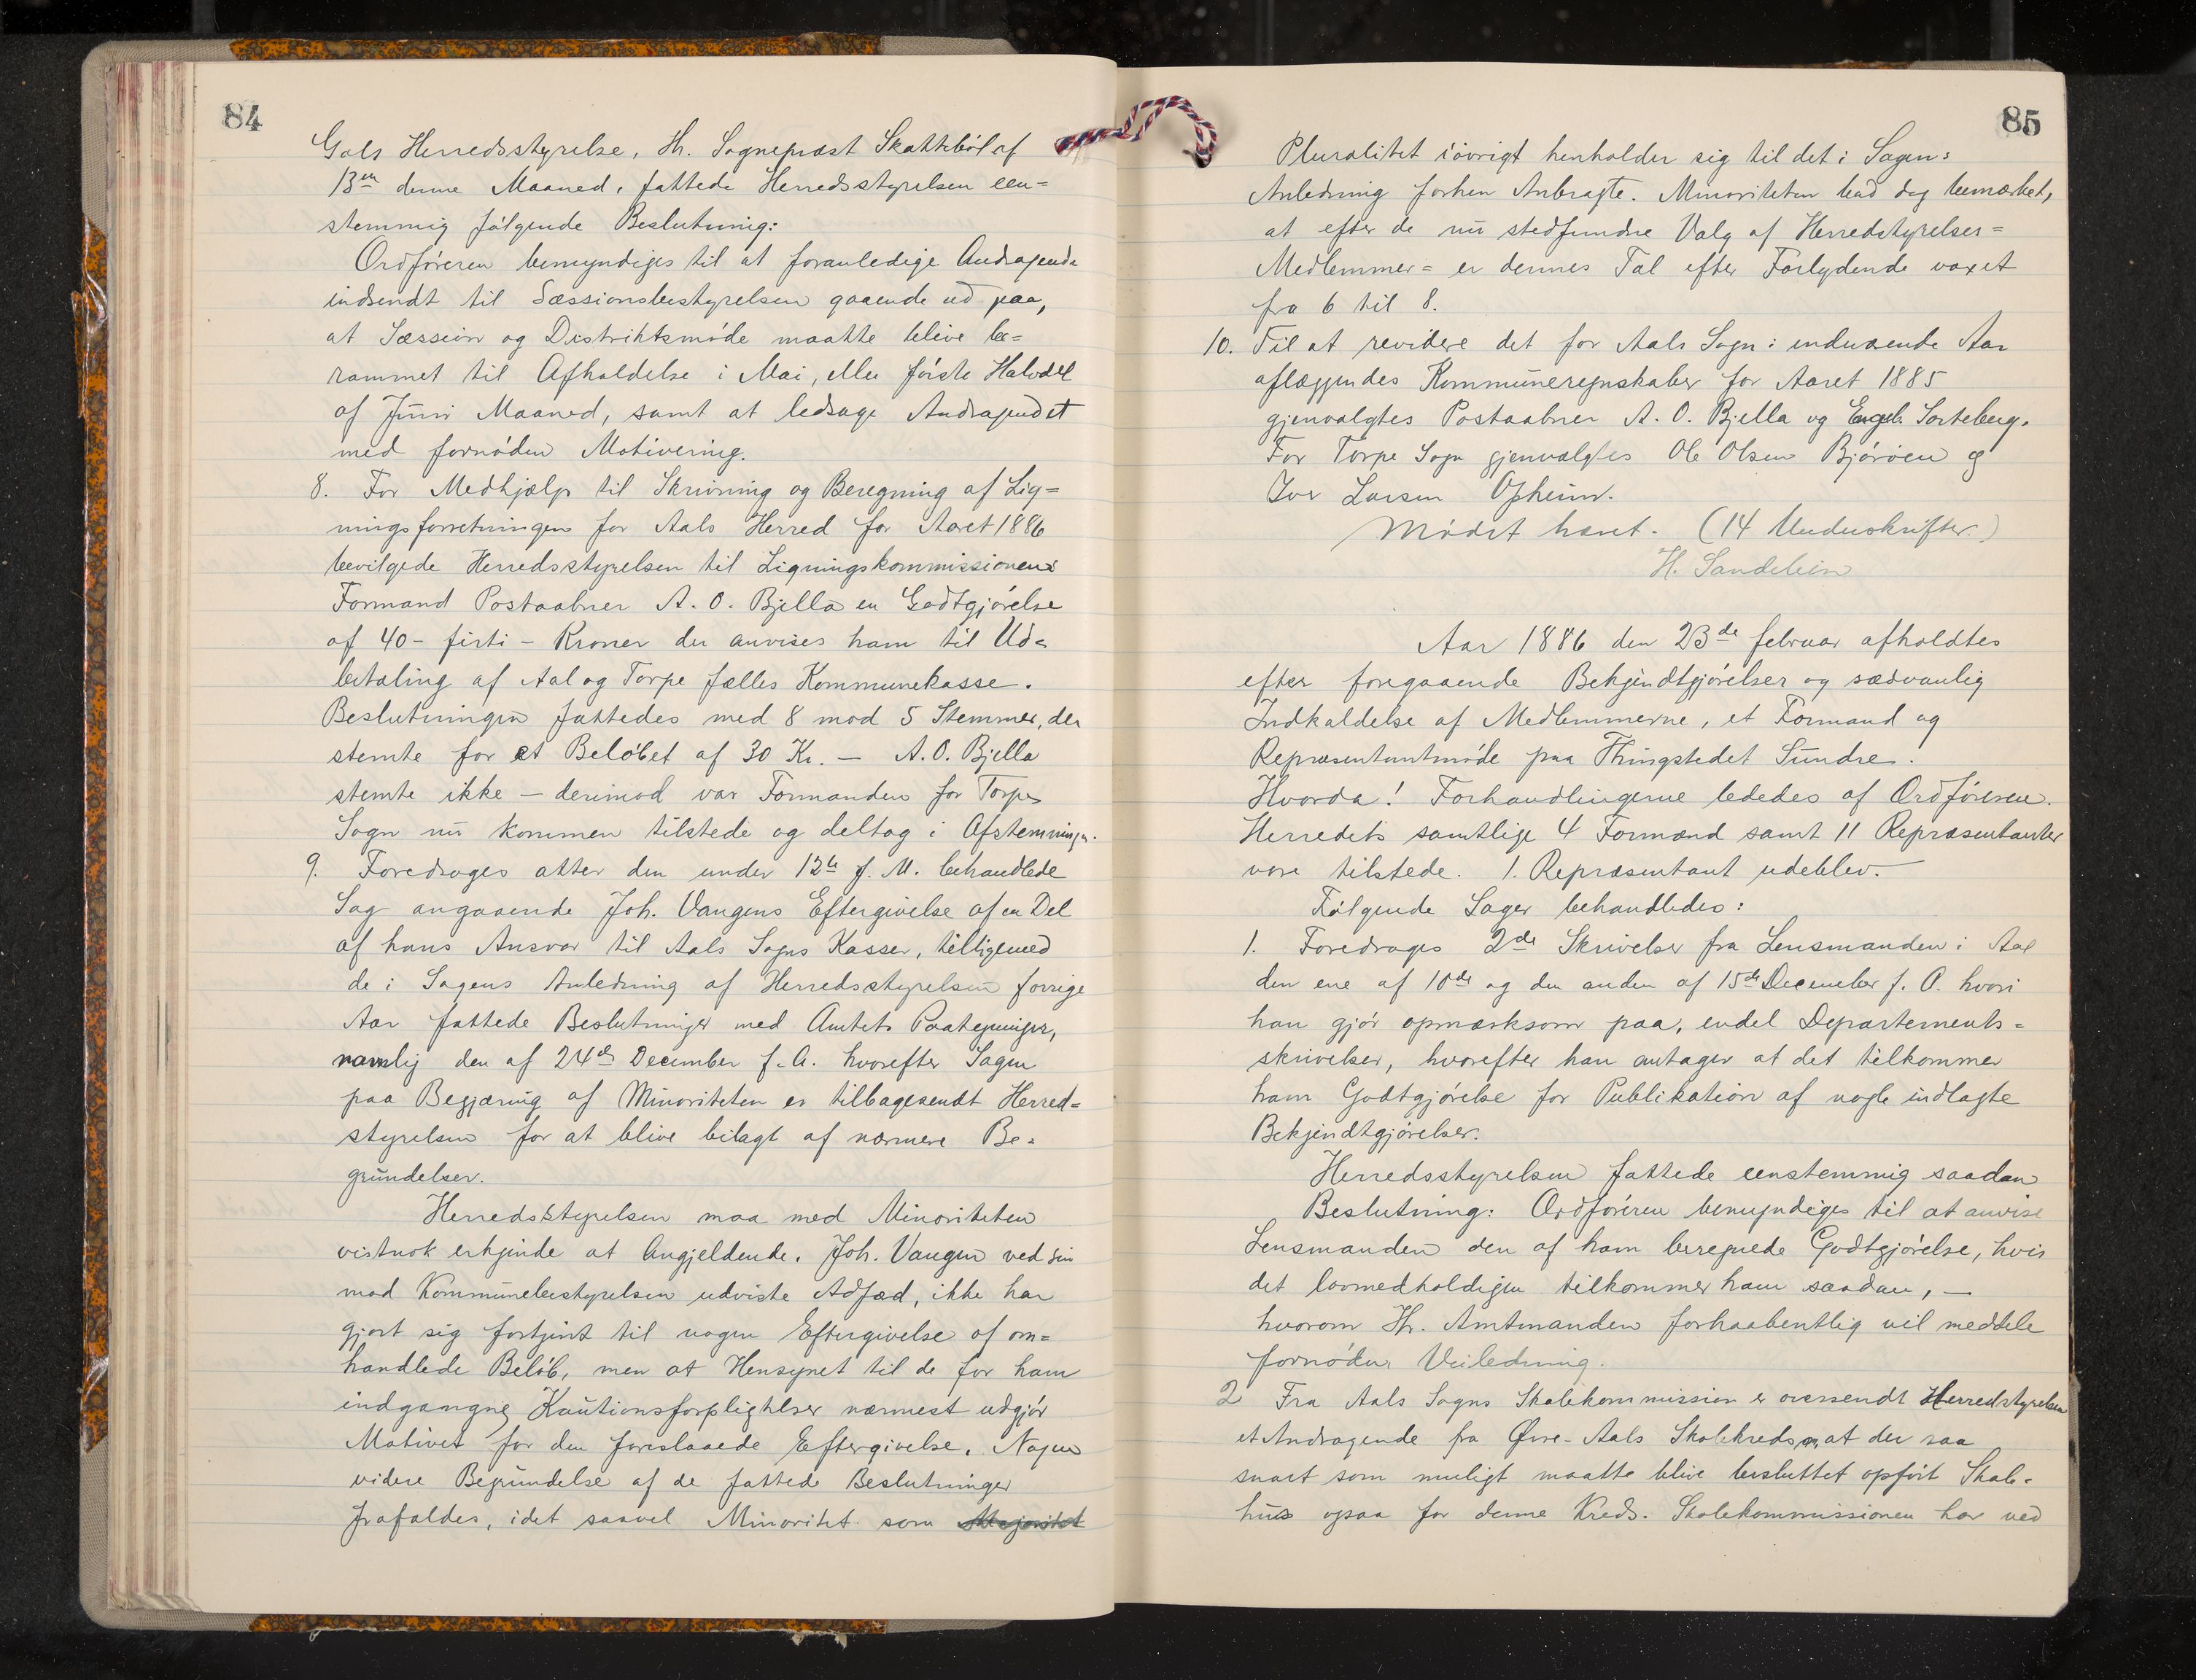 84
Gols Herredsstyrelse, Hr. Sogneprest Skattebøl af
13en denne Maaned, fattede Herredsstyrelsen een=
stemmig følgende Beslutning:
Ordføreren bemyndiges til at foranledige Andragende
indsendt til Sessionsbestyrelsen gaaende ud paa,
at Session og Distriktsmøde maatte blive be=
rammet til Afholdelse i Mai, eller første Halvdel
af Juni Maaned, samt at ledsage Andragendet
med fornøden Motivering.
8. For Medhjælp til Skrivning og Beregning af Lig=
ningsforretningen for Aals Herred for Aaret 1886
bevilgede Herredsstyrelsen til Ligningskommissionens
Formand Postaabner A. O. Bjella en Godtgjørelse
af 40 - firti - Kroner der anvises ham til Ud=
betaling af Aal og Torpe fælles Kommunekasse.
Beslutningen fattedes med 8 mod 5 Stemmer, der
stemte for et Beløbet af 30 Kr. — A. O. Bjella
stemte ikke — derimod var Formanden for Torpe
Sogn nu kommen tilstede og deltog i Afstemningen.
9. Foredroges atter den under 12te f. M. behandlede
Sag angaaende Joh. Vangens Eftergivelse af en Del
af hans Ansvar til Aals Sogns Kasser, tilligemed
de i Sagens Anledning af Herredsstyrelsen forrige
Aar fattede Beslutninger med Amtets Paategninger,
navnlig den af 24de December f. A. hvorefter Sagen
paa Begjæring af Minoriteten er tilbagesendt Herred=
styrelsen for at blive bilagt af nærmere Be=
grundelser.
Herredsstyrelsen maa med Minoriteten
vistnok erkjende at Angjeldende, Joh. Vangen ved sin
mod Kommunebestyrelsen udviste Adfæd, ikke har
gjort sig fortjent til nogen Eftergivelse af om=
handlede Beløb, men at Hensynet til de for ham
indgangne Kautionsforpligtelser nærmest udgjør
Motivet for den foreslaaede Eftergivelse. Nogen
videre Begrundelse af de fattede Beslutninger
frafaldes, idet saavel Minoritet som Majoritet
85
Pluralitet iøvrigt henholder sig til det i Sagens
Anledning forhen Anbragte. Minoriteten bad dog bemærket,
at efter de nu stedfundne Valg af Herredstyrelses=
Medlemmer= er dennes Tal efter Forlydende voxet
fra 6 til 8.
10. Til at revidere det for Aals Sogn i indeværende Aar
aflæggendes Kommuneregnskaber for Aaret 1885
gjenvalgtes Postaabner A. O. Bjella og Engeb. Sorteberg.
For Torpe Sogn gjenvalgtes Ole Olsen Bjørøen og
Iver Larsen Opheim.
Mødet hævet. (14 Underskrifter.)
H. Sandelein
Aar 1886 den 23de februar afholdtes
efter foregaaende Bekjendtgjørelser og sædvanlig
Indkaldelse af Medlemmerne, et Formand og
Repræsentantmøde paa Thingstedet Sundre.
Hvorda! Forhandlingerne lededes af Ordføreren.
Herredets samtlige 4 Formænd samt 11 Repræsentanter
vare tilstede. 1. Repræsentant udeblev.
Følgende Sager behandledes:
1. Foredroges 2de Skrivelser fra Lensmanden i Aal
den ene af 10de og den anden af 15de December f. A. hvori
han gjør opmærksom paa, endel Departements=
skrivelser, hvorefter han antager at det tilkommer
ham Godtgjørelse for Publikation af nogle indlagte
Bekjendtgjørelser.
Herredsstyrelsen fattede eenstemmig saadan
Beslutning: Ordføreren bemyndiges til at anvise
Lensmanden den af ham beregnede Godtgjørelse, hvis
det lovmedholdigen tilkommer ham saadan, —
hvorom Hr. Amtmanden forhaabentlig vil meddele
fornøden Veiledning.
2 Fra Aals Sogns Skolekommission er oversendt Herredstyrelsen
et Andragende fra Øvre-Aals Skolekreds, at der saa
snart som muligt maatte blive besluttet opført Skole=
hus ogsaa for denne Kreds. Skolekommissionen har ved